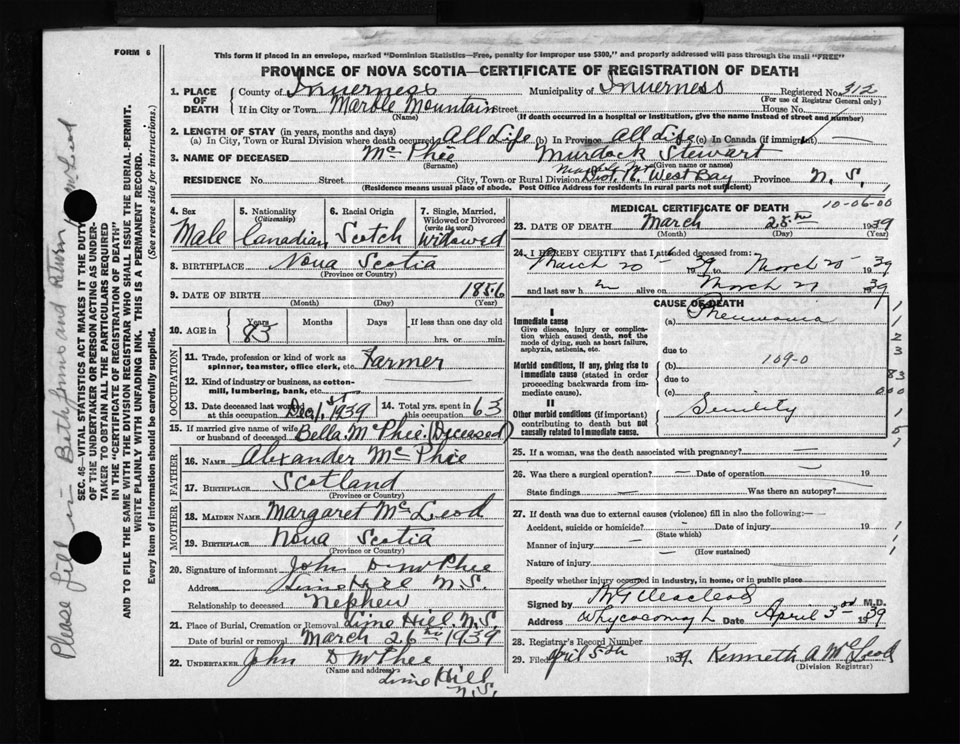 FORM 6
This form if placed in an envelope, marked "Dominion Statistics—Free, penalty for improper use $300," and properly addressed will pass through the mail "FREE"
PROVINCE OF NOVA SCOTIA—CERTIFICATE OF REGISTRATION OF DEATH
1. PLACE OF DEATH
County of Inverness Municipality of Inverness Registered No. 312
(For use of Registrar General only)
If in City or Town Marble Mountain Street House No.
(Name) (If death occurred in a hospital or institution, give the name instead of street and number)
2. LENGTH OF STAY (in years, months and days)
(a) In City, Town or Rural Division where death occurred All Life (b) In Province All Life (c) In Canada (if immigrant)
3. NAME OF DECEASED Mc Phee Murdock Stewart
(Surname) (Given name or names)
RESIDENCE No. Street City, Town or Rural Division West Bay Province N.S.
(Residence means usual place of abode. Post Office Address for residents in rural parts not sufficient)
4. Sex Male
5. Nationality (Citizenship) Canadian
6. Racial Origin Scotch
7. Single, Married, Widowed or Divorced (write the word) Widowed
8. BIRTHPLACE Nova Scotia
(Province or Country)
9. DATE OF BIRTH 1856
(Month) (Day) (Year)
10. AGE in Years Months Days If less than one day old
83 hrs. or min.
OCCUPATION
11. Trade, profession or kind of work as spinner, teamster, office clerk, etc. Farmer
12. Kind of industry or business, as cotton-mill, lumbering, bank, etc.
13. Date deceased last worked at this occupation Dec 1st, 1939 14. Total yrs. spent in this occupation 63
15. If married give name of wife or husband of deceased Bella McPhee (Deceased)
FATHER
16. NAME Alexander Mc Phee
17. BIRTHPLACE Scotland
(Province or Country)
MOTHER
18. MAIDEN NAME Margaret McLeod
19. BIRTHPLACE Nova Scotia
(Province or Country)
20. Signature of informant John D McPhee
Address Lime Hill N.S.
Relationship to deceased Nephew
21. Place of Burial, Cremation or Removal Lime Hill, N.S.
Date of burial or removal March 26th 1939
22. UNDERTAKER John D McPhee
(Name and address) Lime Hill
N.S.
MEDICAL CERTIFICATE OF DEATH 10-06-00
23. DATE OF DEATH March 25th 1939
(Month) (Day) (Year)
24. I HEREBY CERTIFY that I attended deceased from:—
March 20 1939 to March 20 1939
and last saw h m alive on March 1939
CAUSE OF DEATH
I
Immediate cause
Give disease, injury or complication which caused death, not the mode of dying, such as heart failure, asphyxia, asthenia, etc.
(a) Pneumonia
due to
Morbid conditions, if any, giving rise to immediate cause (stated in order proceeding backwards from immediate cause)
(b) 109-0
due to
(c)
II
Other morbid conditions (if important) contributing to death but not causally related to immediate cause
Senility
25. If a woman, was the death associated with pregnancy?
26. Was there a surgical operation? Date of operation 19
State findings Was there an autopsy?
27. If death was due to external causes (violence) fill in also the following:—
Accident, suicide or homicide? Date of injury 19
(State which)
Manner of injury
(How sustained)
Nature of injury
Specify whether injury occurred in industry, in home, or in public place
Signed by M.D.
Address Whycocomagh Date April 3rd 1939
28. Registrar's Record Number
29. Filed April 5th 1939 Kenneth A McLeod
(Division Registrar)
SEC. 46—VITAL STATISTICS ACT MAKES IT THE DUTY OF THE UNDERTAKER OR PERSON ACTING AS UNDERTAKER TO OBTAIN ALL THE PARTICULARS REQUIRED IN THE "CERTIFICATE OF REGISTRATION OF DEATH" AND TO FILE THE SAME WITH THE DIVISION REGISTRAR WHO SHALL ISSUE THE BURIAL PERMIT.
WRITE PLAINLY WITH UNFADING INK. THIS IS A PERMANENT RECORD.
Every item of information should be carefully supplied. (See reverse side for instructions.)
Please fill in and Return